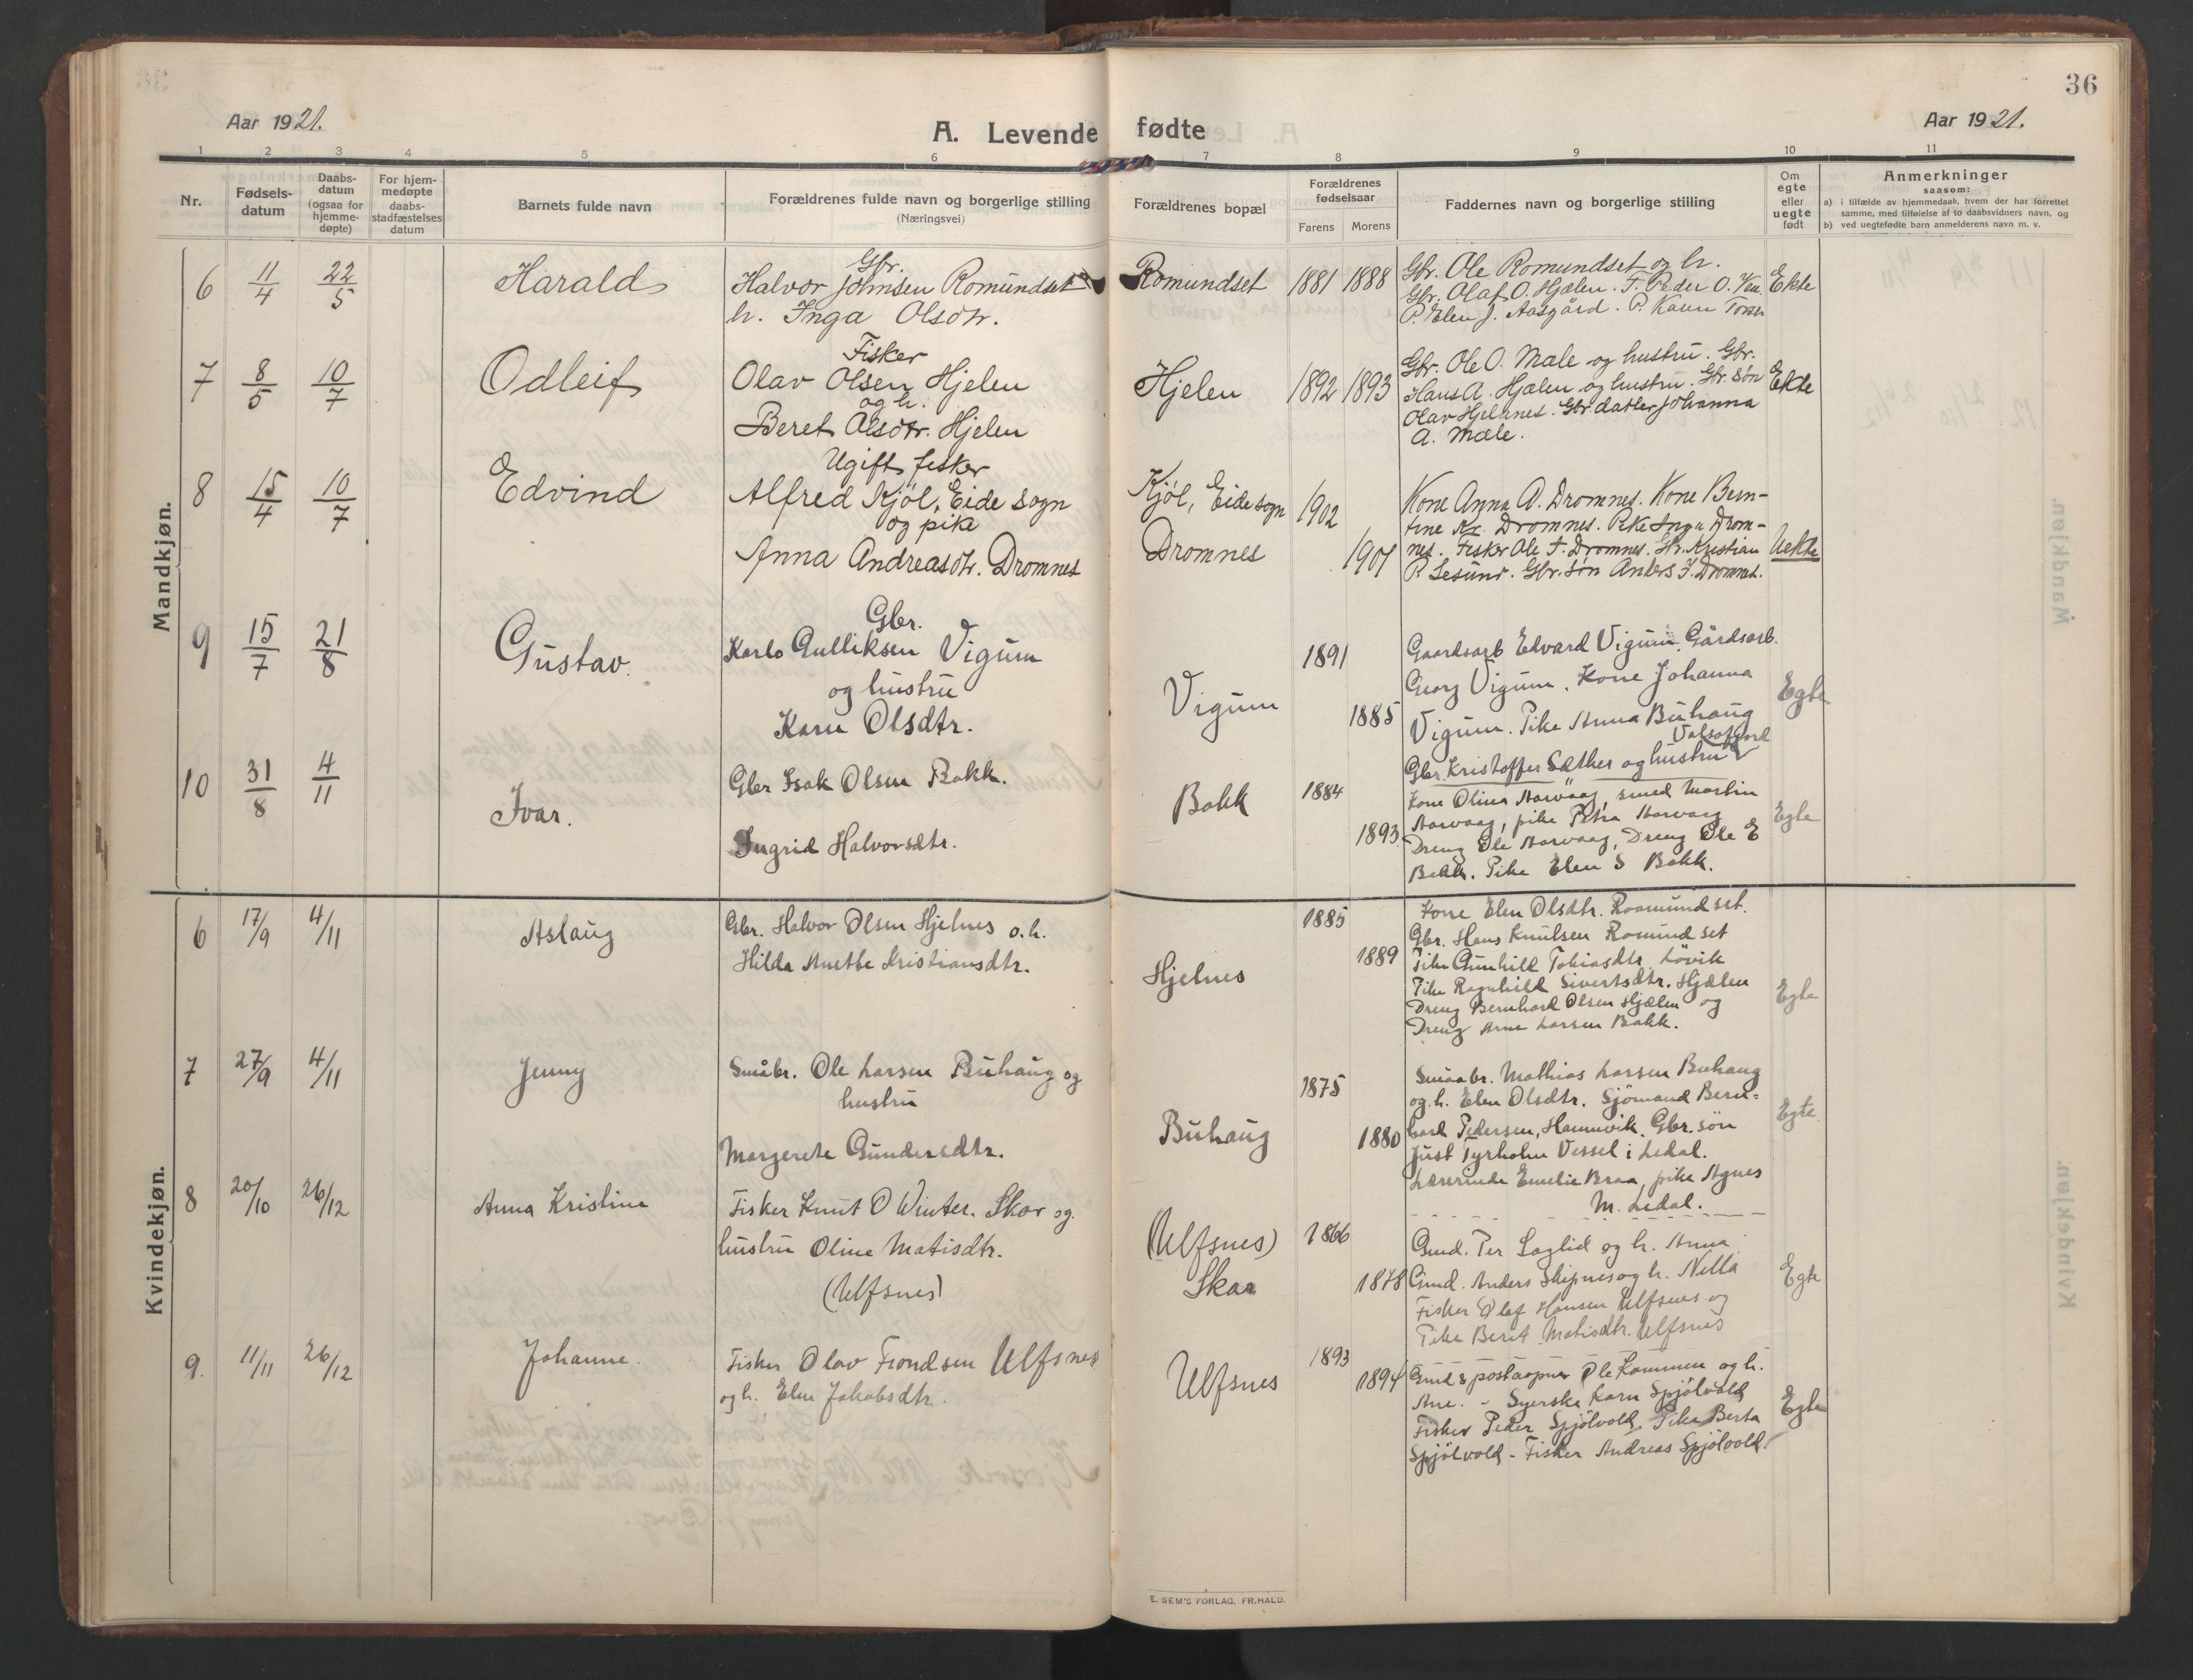 36
Aar 1921.
A. Levende fødte
Aar 1921.
1 2 3 4 5 6 7 8 9 10 11
Nr.
Fødsels-
datum
Daabs-
datum
(ogsaa for
hjemme-
døpte)
For hjem-
medøpte
daabs-
stadfæstelses
datum
Barnets fulde navn
Forældrenes fulde navn og borgerlige stilling
(Næringsvei)
Forældrenes bopæl
Forældrenes
fødselsaar
Farens Morens
Faddernes navn og borgerlige stilling
Om
egte
eller
uegte
født
Anmerkninger
saasom:
a) i tilfælde av hjemmedaab, hvem der har forrettet
samme, med tilføielse af to daabsvidners navn, og
b) ved uegtefødte barn anmelderens navn m. v.
Mandkjøn.
6 11/4 22/5 Harald
Gbr.
Halvor Johnsen Romundset
h. Inga Olsdtr.
Romundset 1881 1888
Gbr. Ole Romundset og h.
Gbr. Olaf O. Hjælen. F. Peder O.
P. Elen J. Aasgård. P. Karen
Ekte
7 8/5 10/7 Odleif
Fisker
Olav Olsen Hjelen
og h.
Beret Olsdtr. Hjelen
Hjelen 1892 1893
Gbr. Ole O. Mæle og hustru. Gbr.
Hans A. Hjælen og hustru. Gbr. søn
Olav Hjelnes. Gbr. datter Johanna
A. Mæle.
Ekte
8 15/4 10/7 Edvind
Ugift fisker
Alfred Kjöl, Eide sogn
og pike
Anna Andreasdtr. Dromnes
Kjöl, Eide sogn 1902
Dromnes 1901
Kone Anna A. Dromnes. Kone Bern-
tine Kr. Dromnes. Pike Inga Drom-
nes. Fisker Ole T. Dromnes. Gbr. Kristian
P. Lesund. Gbr. søn Anders J. Dromnes.
Uekte
9 15/7 21/8 Gustav.
Gbr.
Karlo Gulliksen Vigum
og hustru
Karen Olsdtr.
Vigum 1891 1885
Gaardsarb Edvard Vigum. Gårdsarb.
Georg Vigum. Kone Johanna
Vigum. Pike Anna Buhaug
Valsøfjord
Gbr. Kristoffer Sæther og hustru
Egte
10 31/8 4/11 Ivar.
Gbr Isak Olsen Bakk.
Ingrid Halvorsdtr.
Bakk 1884 1893
Kone Olina Aarvaag, smed Martin
Aarvaag, pike Petra Aarvaag
Dreng Ole Aarvaag, Dreng Ole E
Bakk. Pike Elen S Bakk.
Egte
Kvindekjøn.
6 17/9 4/11 Aslaug
Gbr. Halvor Olsen Hjelnes o. h.
Hilda Anette Kristiansdtr.
Hjelnes 1885 1889
Kone Elen Olsdtr. Roamundset.
Gbr. Hans Knutsen Romundset
Pike Gunhild Tobiasdtr Lövik
Pike Ragnhild Sivertsdtr. Hjælen
Dreng Bernhard Olsen Hjælen og
Dreng Arne Larsen Bakk.
Egte
7 27/9 4/11 Jenny
Småbr. Ole Larsen Buhaug og
hustru
Margrete Gundersdtr.
Buhaug 1875 1880
Smaabr. Mathias Larsen Buhaug
og. h. Elen Olsdtr. Sjömand Bern-
hard Pedersen, Hamnvik. Gbr. søn
Just Tyrholm Vessel i Ledal.
Lærerinde Emelie Braa, pike Agnes
M. Ledal.
Egte
8 20/10 26/12 Anna Kristine
Fisker Knut O Winter. Skar og
hustru Oline Matisdtr.
(Ulfsnes)
(Ulfsnes)
Skar 1866 1878
Gmd. Per Saglid og h. Anna
Gmd. Anders Skipnes og h. Nella
Fisker Olaf Hansen Ulfsnes og
Pike Beret Matisdtr. Ulfsnes
Egte
9. 11/11 26/12 Johanne.
Fisker Olav Trondsen Ulfsnes
og h. Elen Jakobsdtr.
Ulfsnes 1893 1894
Gmd & postaapner Ole Kammen og h.
Ane. - Syerske Karn Spjölvold
Fisker Peder Spjölvold. Pike Berta
Spjölvold - Fisker Andreas Spjölvold
Egte
E. SEM'S FORLAG, FR.HALD.